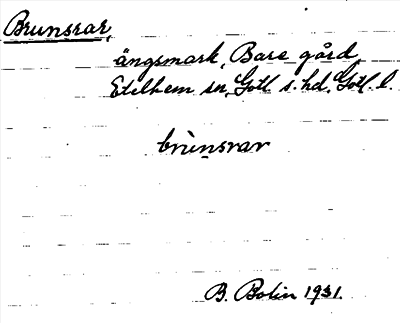 Brunsrar,
ängsmark, Bare gård,
Etelhem sn, Gotl s. hd, Gotl. l.
brùnsrar
B. Bolin 1931.